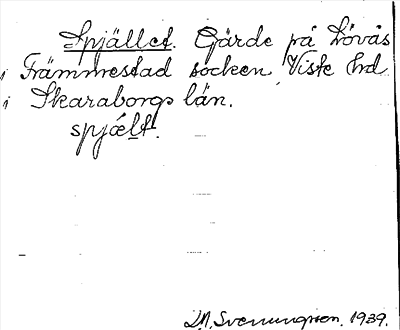 Spjället. Gärde på Lövås
i Främmestad socken Viste hrd
i Skaraborgs län.
spjælt.
D.N. Svenungsson. 1939.